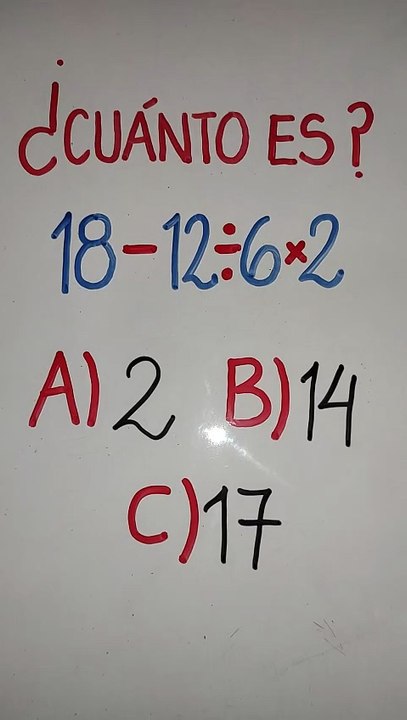 ¿CUÁNTO ES?
18-12÷6×2
A) 2 B) 14
C) 17